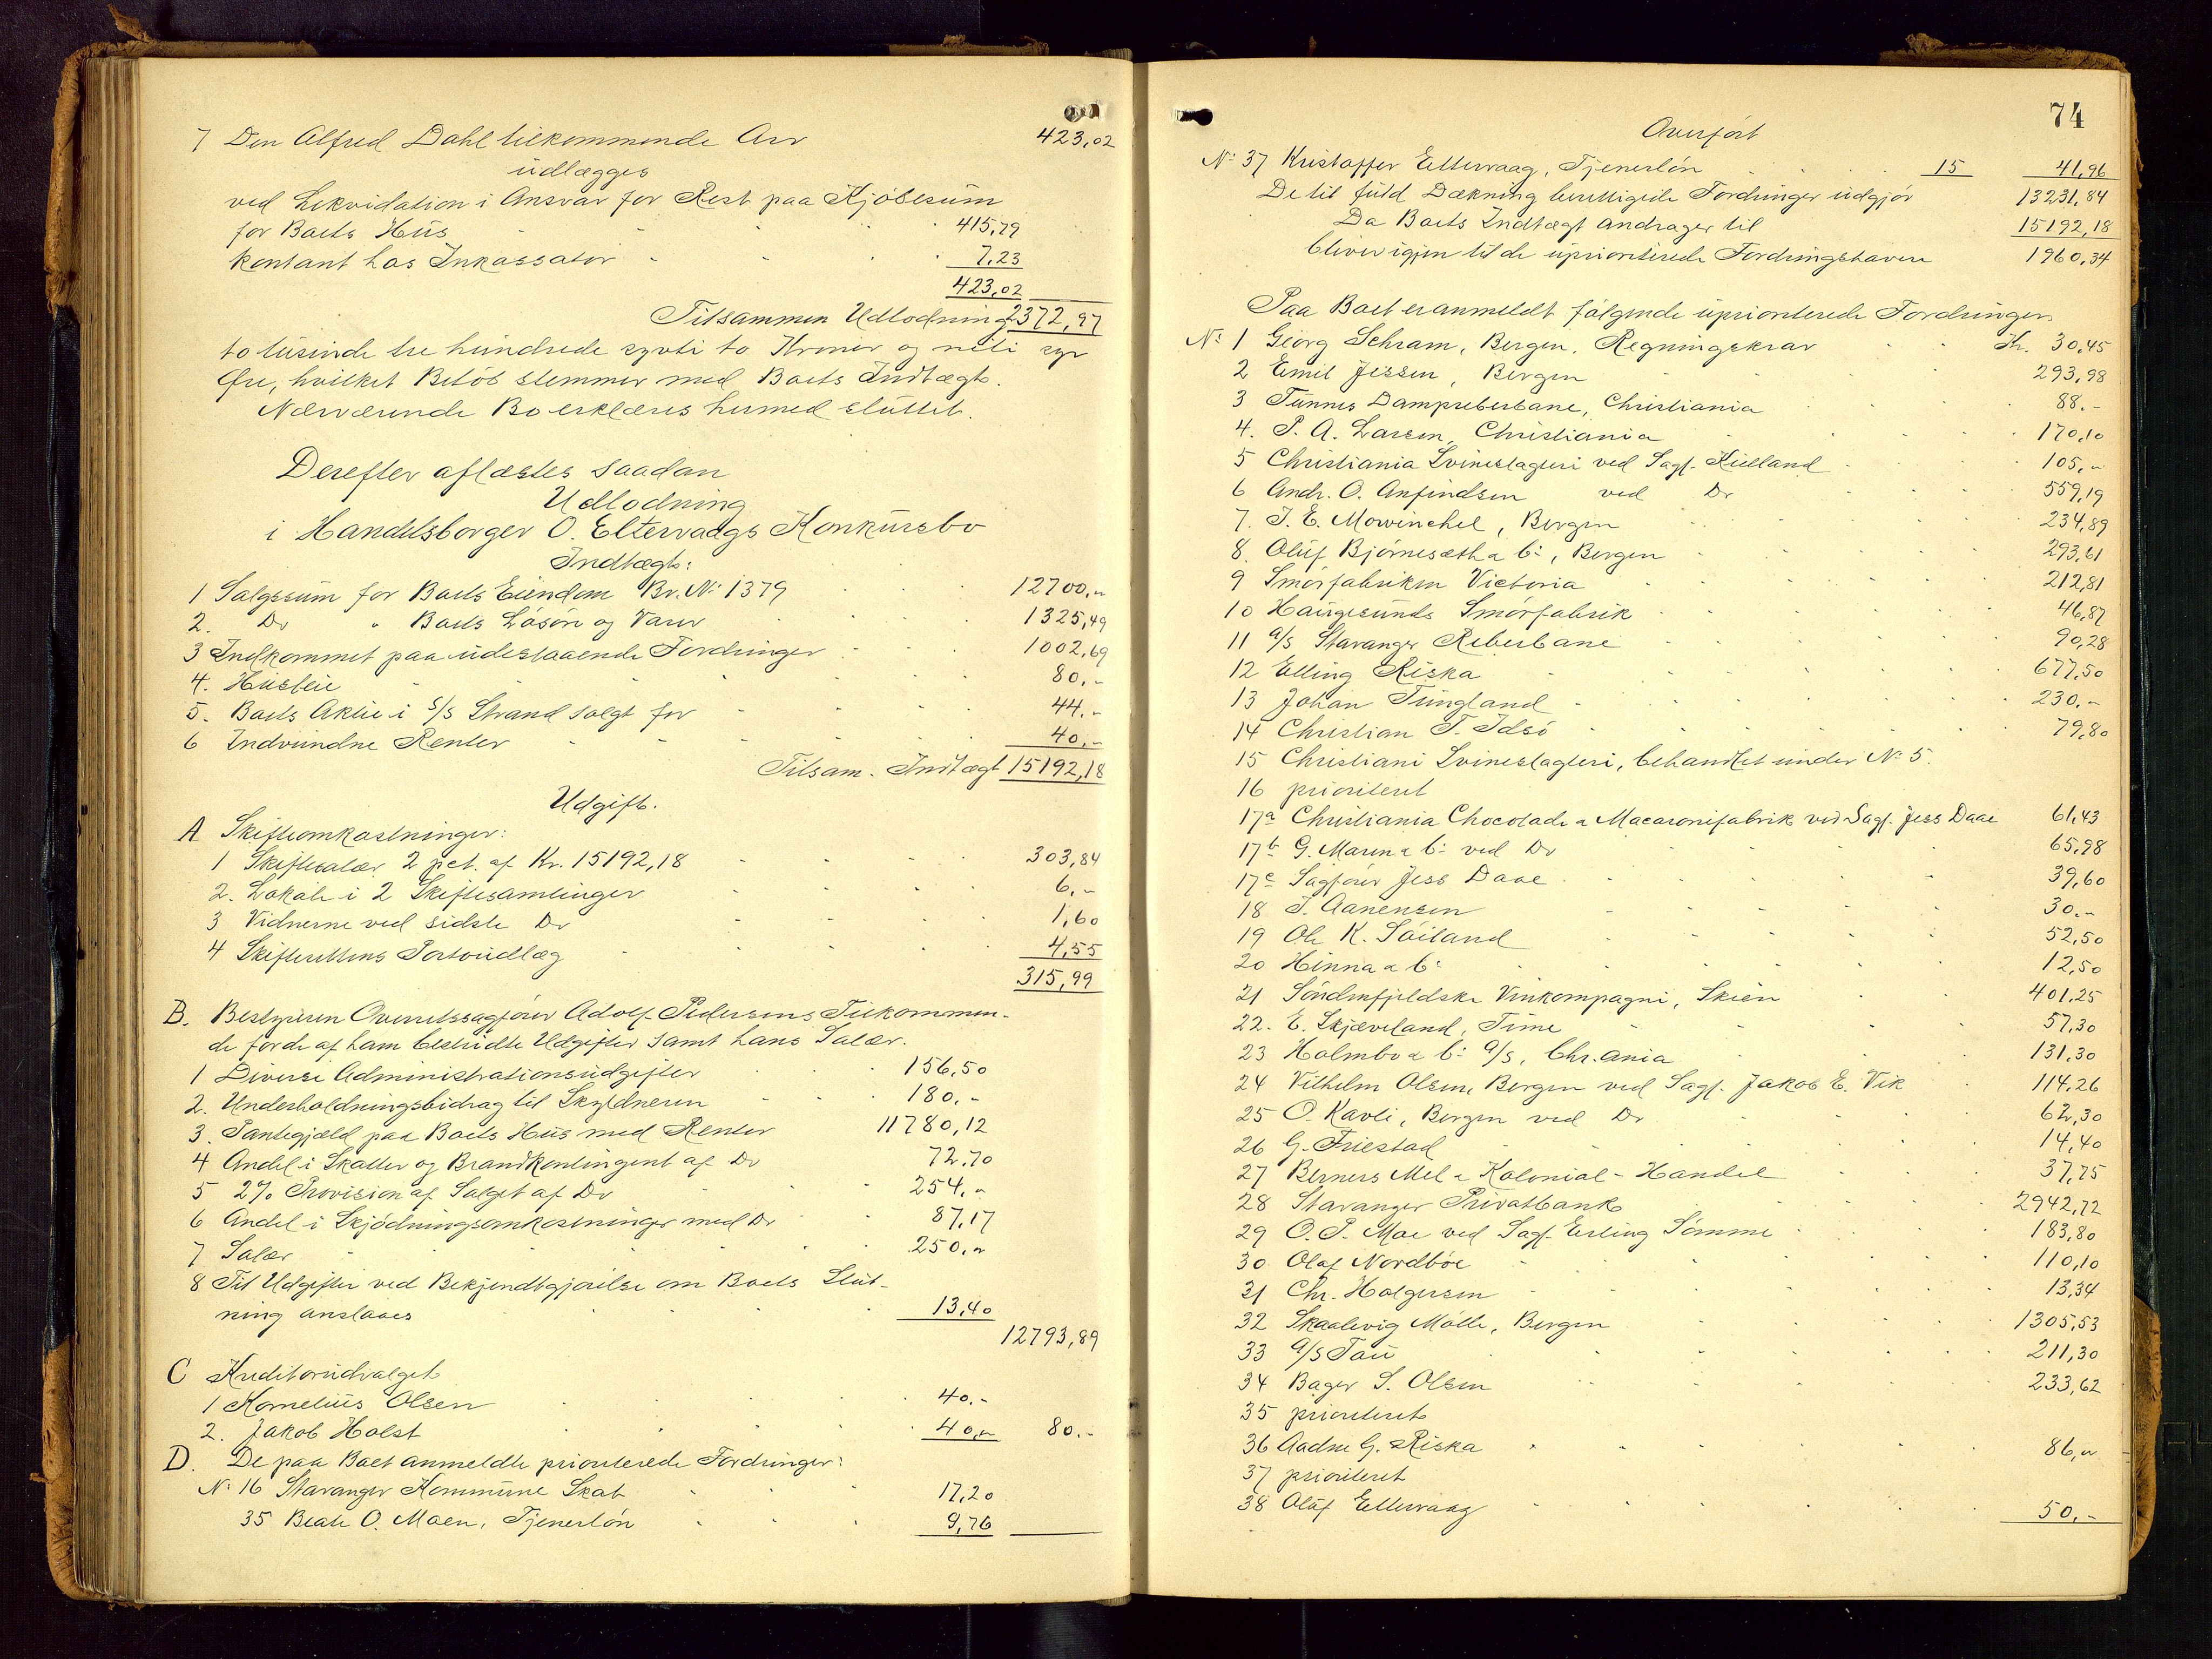 7 Den Alfred Dahl tilkommende Arv 423,02
udlægges
ved Likvidation i Ansvar for Rest paa Kjöbesum
for Boets Hus 415,79
kontant hos Inkassator 7,23
423,02
Tilsammen Udlodning 2372,97
to tusinde tre hundrede sytti to Kroner og nitti syv
Øre, hvilket Belöb stemmer med Boets Indtægt.
Nærværende Bo erklæres hermed sluttet.
Derefter aflæstes saadan
Udlodning
i Handelsborger O. Eltervaags Konkursbo
Indtægt:
1 Salgssum for Boets Eiendom Br. No 1379 12700,"
2. Do " Boets Lösöre og Varer 1325,49
3 Indkommet paa udestaaende Fordringer 1002,69
4. Husleie 80.-
5. Boets Aktie i S/S Strand solgt for 44.-
6 Indvundne Renter 40.-
Tilsam. Indtægt 15192,18
Udgift.
A Skifteomkostninger:
1 Skiftesalær 2 pct. af Kr. 15192,18 303,84
2. Lokale i 2 Skiftesamlinger 6.-
3 Vidnerne ved sidste Do 1,60
4 Skifterettens Portoudlæg 4,55
315,99
B. Bestyreren Overretssagförer Adolf Pedersens Tilkommen-
de for de af ham bestridte Udgifter samt hans Salær.
1 Diverse Administrationsudgifter 156,50
2. Underholdningsbidrag til Skyldneren 180.-
3. Pantegjæld paa Boets Hus med Renter 11780,12
4 Andel i Skatter og Brandkontingent af Do 72,70
5 2% Provision af Salget af Do 254,"
6 Andel i Skjödningsomkostninger med Do 87,17
7 Salær 250,"
8 Til Udgifter ved Bekjendtgjörelse om Boets Slut-
ning anslaaes 13,40
12793,89
C Kreditorudvalget
1 Kornelius Olsen 40.-
2. Jakob Holst 40," 80.-
D. De paa Boet anmeldte prioriterede Fordringer:
No 16 Stavanger Kommune Skat 17,20
35 Beate O. Moen, Tjenerlön 9,76
74
Overfört
No 37 Kristoffer Eltervaag, Tjenerlön 15 41,96
De til fuld Dækning berettigede Fordringer udgjör 13231,84
Da Boets Indtægt andrager til 15192,18
bliver igjen til de uprioriterede Fordringshavere 1960,34
Paa Boet er anmeldt fölgende uprioriterede Fordringer.
No 1 Georg Schram, Bergen, Regningskrav Kr. 30,45
2 Emil Jessen, Bergen 293,98
3 Tönnes Dampreberbane, Christiania 88.-
4. P. A. Larsen, Christiania 170,10
5 Christiania Svineslagteri ved Sagf. Kielland 105,"
6 Andr. O. Anfindsen ved Do 559,19
7. J. E. Mowinckel, Bergen 234,89
8. Oluf Bjørnesæth & Co, Bergen 293,61
9 Smörfabriken Victoria 212,81
10 Haugesunds Smörfabrik 46,87
11 A/S Stavanger Reberbane 90,28
12 Elling Riska 677,50
13 Johan Tungland 230.-
14 Christian T. Idsö 79,80
15 Christiani Svineslagteri, behandlet under No 5.
16 prioriteret
17a Christiania Chocolade & Macaronifabrik ved Sagf. Jess Daae 61,43
17b G. Maren & Co ved Do 65,98
17c Sagförer Jess Daae 39,60
18 J. Aanensen 30.-
19 Ole K. Söiland 52,50
20 Hinna & Co 12,50
21 Söndenfjeldske Vinkompagni, Skien 401,25
22. E. Skjæveland, Time 57,30
23 Holmbo & Co A/S, Chr.ania 131,30
24 Vilhelm Olsen, Bergen ved Sagf. Jakob E. Vik 114,26
25 O. Kavli, Bergen ved Do 62,30
26 G. Friestad 14,40
27 Berners Mel & Kolonial-Handel 37,75
28 Stavanger Privatbank 2942,72
29 O. P. Moe ved Sagf. Erling Sömme 183,80
30 Olaf Nordböe 110,10
31 Chr. Holgersen 13,34
32 Skaalevig Mölle, Bergen 1305,53
33 A/S Tou 211,30
34 Bager S. Olsen 233,62
35 prioriteret
36 Aadne G. Riska 86,"
37 prioriteret
38 Oluf Eltervaag 50.-